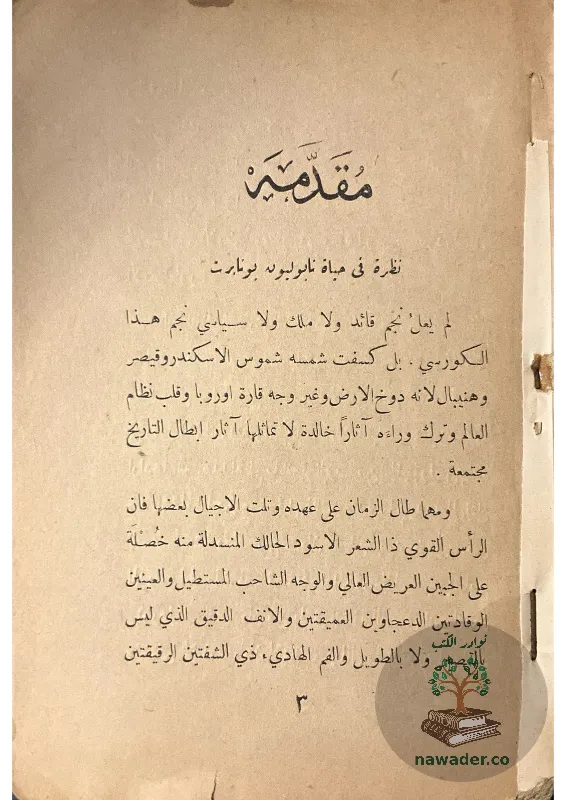 مُقَدَّمَة
نظرة في حياة نابوليون بونابرت
لم يعلُ نجم قائد ولا ملك ولا سياسي نجم هـذا
الكورسي . بل كسفت شمسه شموس الاسكندر وقيصر
وهنيبال لانه دوخ الارض وغير وجه قارة اوروبا وقلب نظام
العالم وترك وراءه آثاراً خالدة لا تماثلها آثار ابطال التاريخ
مجتمعة .
ومهما طال الزمان على عهده وتلت الاجيال بعضها فان
الرأس القوي ذا الشعر الاسود الحالك المنسدلة منه خُصْلَة
على الجبين العريض العالي والوجه الشاحب المستطيل والعينين
الوقادتين الدعجاوين العميقتين والانف الدقيق الذي ليس
بالقصير ولا بالطويل والفم الهادي، ذي الشفتين الرقيقتين
٣
نوادر الكتب
nawader.co